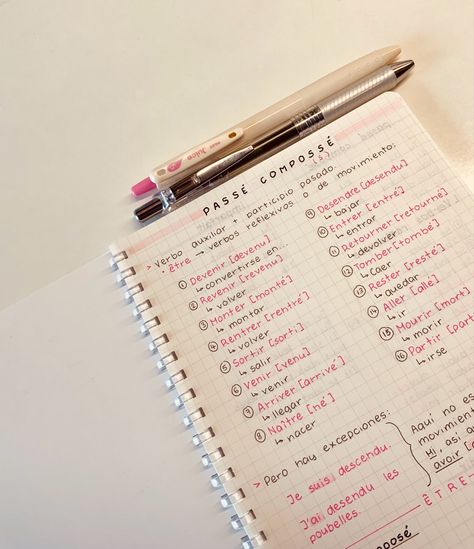 Juice
PASSÉ COMPOSSÉ
(s)
> Verbo auxiliar + participio pasado.
• être → verbos reflexivos o de movimiento:
① Devenir [devenu]
↳ convertirse en...
② Revenir [revenu]
↳ volver
③ Monter [monté]
↳ montar
④ Rentrer [rentré]
↳ volver
⑤ Sortir [sorti]
↳ salir
⑥ Venir [venu]
↳ venir
⑦ Arriver [arrivé]
↳ llegar
⑧ Naître [né]
↳ nacer
⑨ Desendre [desendu]
↳ bajar
⑩ Entrer [entré]
↳ entrar
⑪ Retourner [retourné]
↳ devolver
⑫ Tomber [tombé]
↳ caer
⑬ Rester [resté]
↳ quedar
⑭ Aller [allé]
↳ ir
⑮ Mourir [mort]
↳ morir
⑯ Partir [parti
↳ irse
> Pero hay excepciones:
Je suis descendu.
J'ai desendu les
poubelles.
Aquí no es
movimien
así, qu
avoir [
ÊTRE